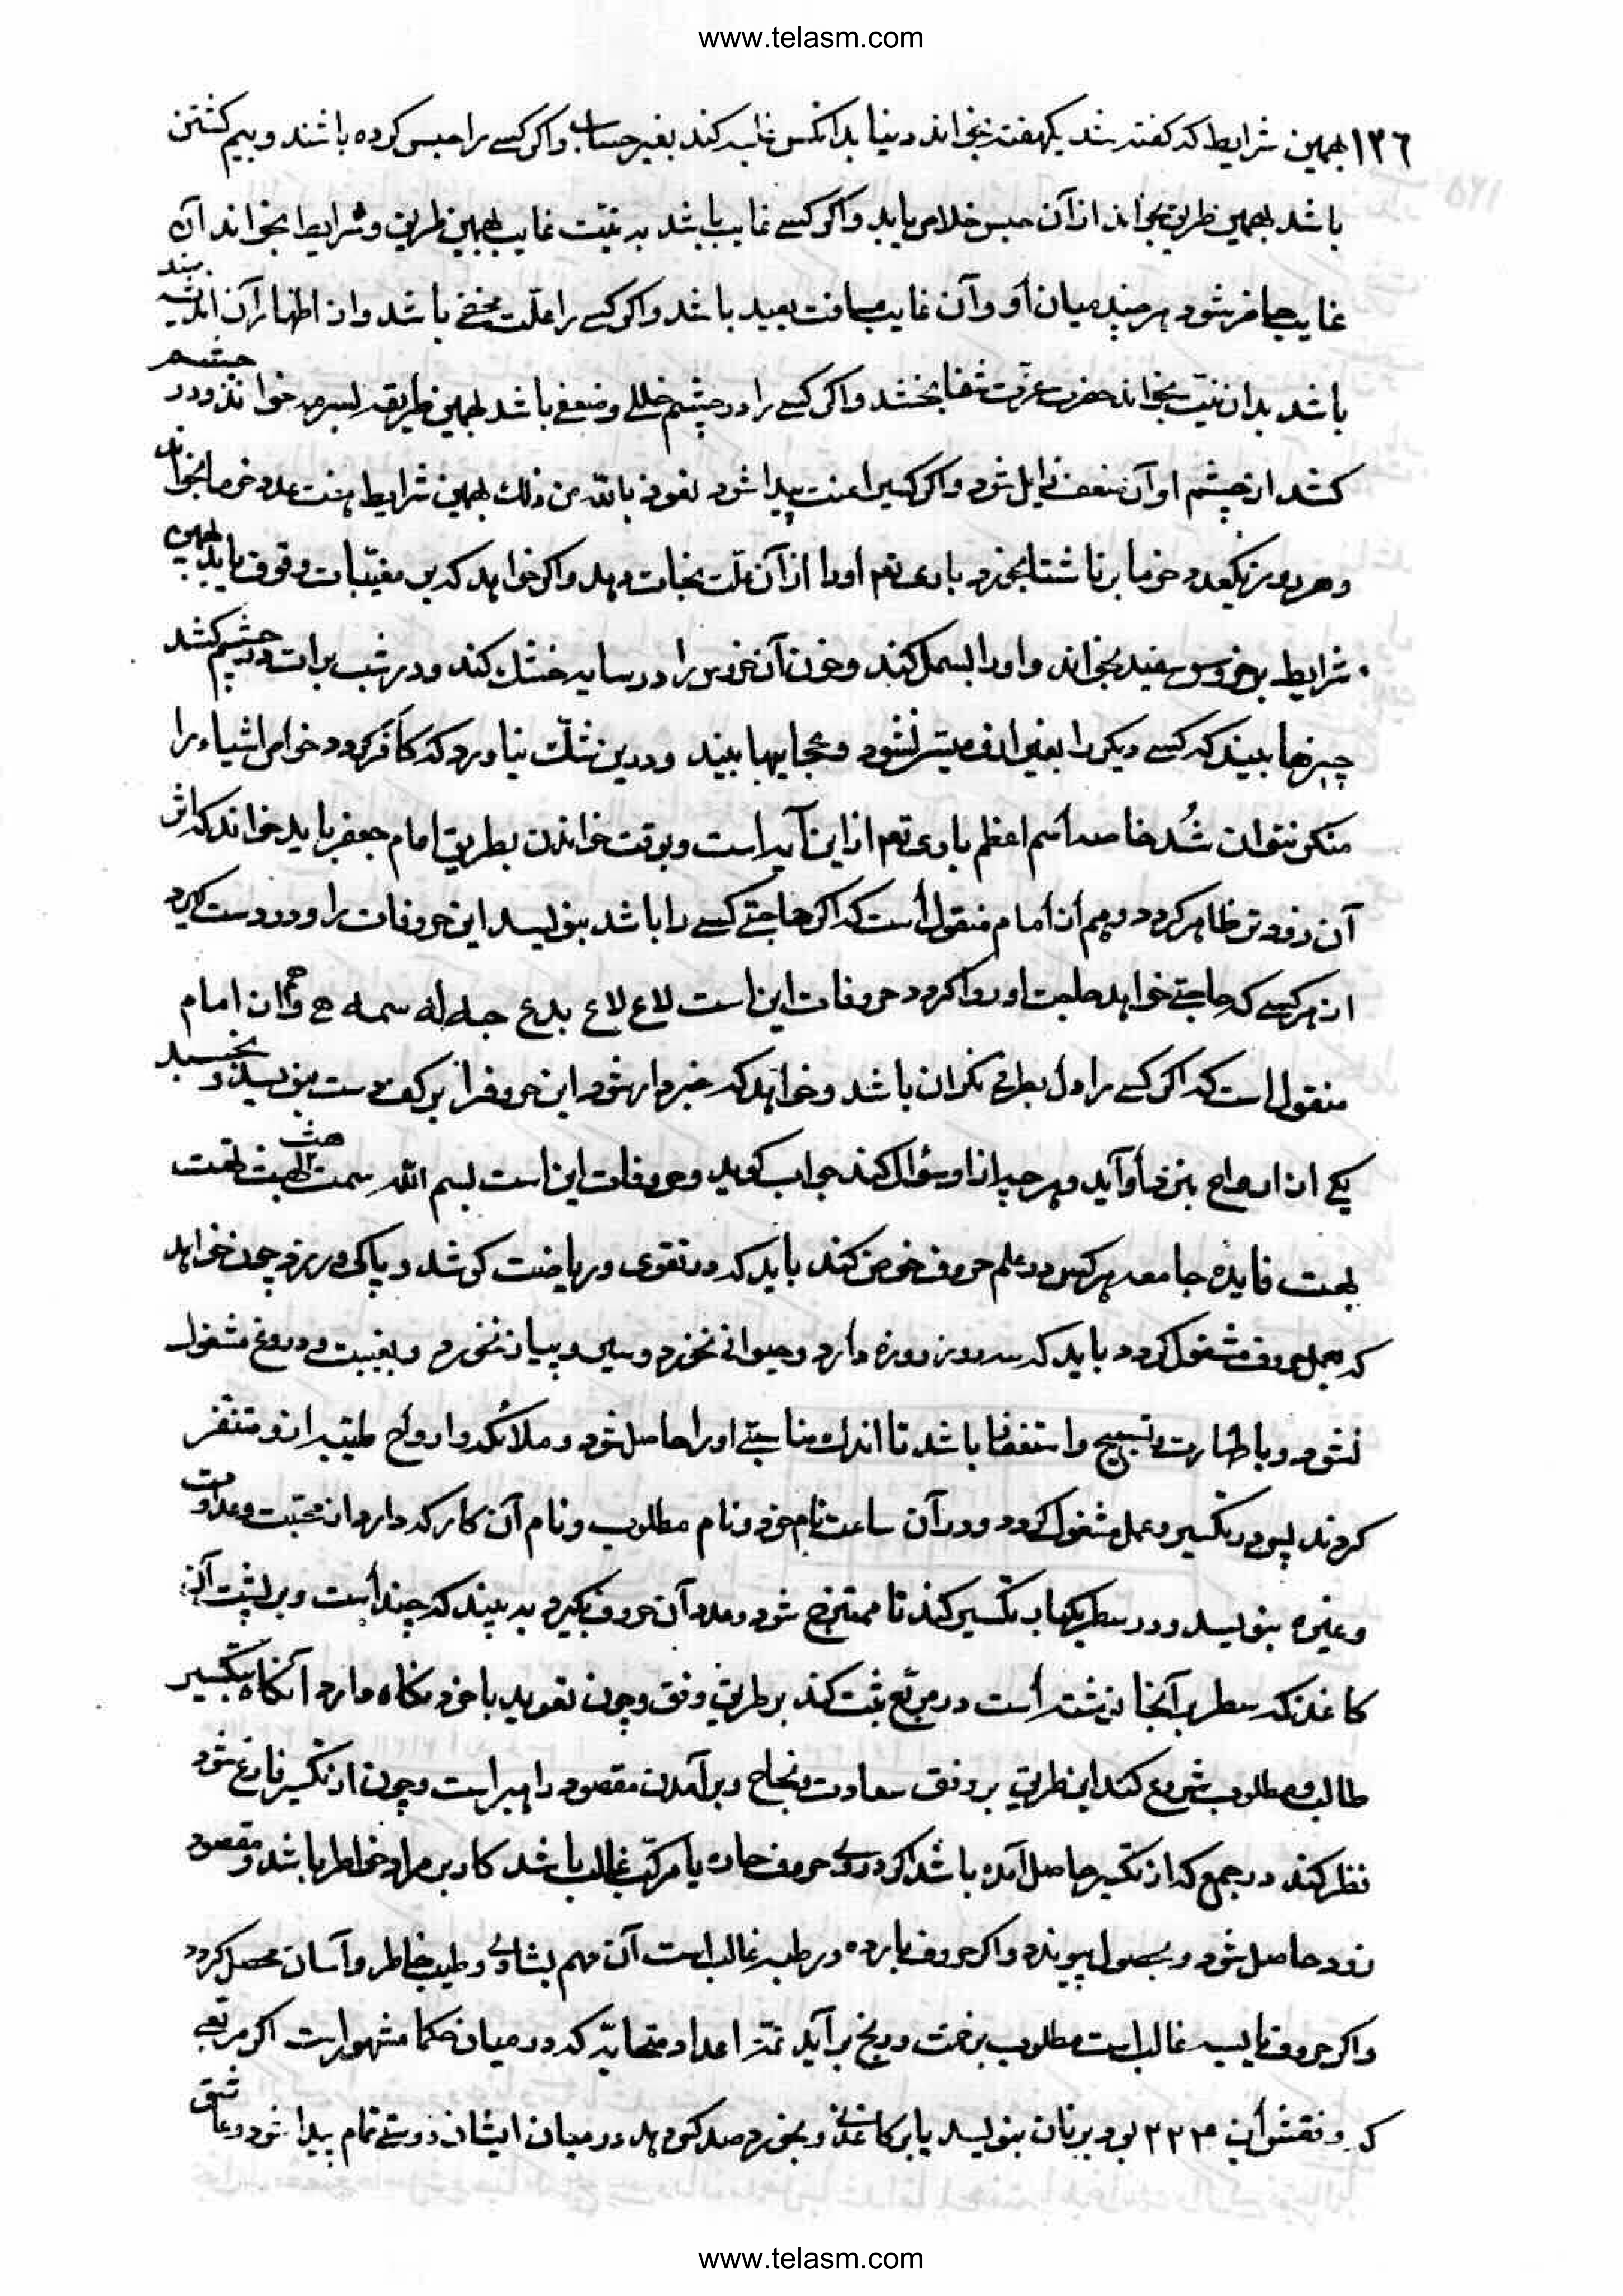 www.telasm.com
۱۳۶ بهمین شرایط که گفته شد یکهفته بخواند دنیا بدانکس غلبه کند بغیر حساب و اگر کسے را حبس کرده باشند و بیم کشتن
باشد بهمین طریق بخواند از آن حبس خلاص یابد و اگر کسے غایب باشد به نیّت غایب بهمین طریق و شرایط بخواند آن
غایب حاضر شود هر چند میان او و آن غایب مسافت بعید باشد و اگر کسے را علّت مخفے باشد و از اظهار آن
باشد بدان نیّت بخواند حضرت عزّت شفا بخشد و اگر کسے را در چشم خللے و ضعفے باشد بهمین طریقه بسرمه خواند و در چشم
کشد از چشم او آن ضعف زایل شود و اگر کسیرا عنت پیدا شود نعوذ بالله من ذلك بهمین شرایط هفت عدد خرما بخواند
و هر روز یکعدد خرما بر ناشتا بخورد باری تع اورا از آن علّت نجات دهد و اگر خواهد که بر مغیبات وقوف یابد بهمین
شرایط بر خروس سفید بخواند و اورا بسمل کند و خون آن خروس را در سایه خشك کند و در شب برات در چشم کشد
چیزها بیند که کسے دیگر را میسّر نشود و عجایبها بیند و درین شك نیاورد که کافر گردد خواص اشیاء را
منکر نتوان شُد خاصه اسم اعظم باری تع از این آیه است و بوقت خواندن بطریق امام جعفر باید خواند که اثر
آن زودتر ظاهر گردد و هم از امام منقول است که اگر حاجتے کسے را باشد بنویسد این حروفات را و در دست گیرد
از هر کسے که حاجتے خواهد حاجت او روا گردد حروفات این است لاع لاع بدع جه له سمه ح و هم از امام
منقول است که اگر کسے را دل بطرفے نگران باشد و خواهد که خبردار شود این حروفرا بر کف دست بنویسد و بخسبد
یکے از ارواح بنزد او آید و هر چه از او سؤال کند جواب گوید و حروفات این است بسم الله
بهت فایده جامعه هر کس در علم حروف خوض کند باید که در تقوی و ریاضت کوشد و پاکی ورزد و چون خواهد
که بعمل حروف مشغول گردد باید که سه روز روزه دارد و حیوانے نخورد و سیر و پیاز نخورد و بغیبت و دروغ مشغول
نشود و با طهارت و تسبیح و استغفار باشد تا اندك مناسبتے اورا حاصل شود و ملائکه و ارواح طیّبه از و متنفّر
گردند پس در تکسیر و عمل مشغول گردد و در آن ساعت نام خود و نام مطلوب و نام آن کار که دارد از محبّت و عداوت
و غیره بنویسد و در سطر یکها به تکسیر کند تا ممتزج شود و عدد آن حروف بگیرد به بیند که چند است و بر پشت آن
کاغذ که سطر بر آنجا نوشته است در مربّع ثبت کند بر طریق وفق و چون تعوید با خود نگاه دارد آنگاه بتکسیر
طالب و مطلوب شروع کند این طریق بر وفق سعادت و نجاح و بر آمدن مقصود راهبر است و چون از تکسیر فارغ شود
نظر کند در جمع که از تکسیر حاصل آمده باشد اگر در وے حروف حاره یا مرکّب غالب باشد کار بر مراد خاطر باشد و مقصود
زود حاصل شود و بحصول پیوندد و اگر حروف بارده و رطبه غالب است آن مهم بشادے و طیب خاطر و آسان محصل گردد
و اگر حروف یابسه غالب است مطلوب بزحمت و رنج بر آید اعداد متحابّه که در میان حکما مشهور است اگر مربّعے
که وفقش این ۲۲۴ بود بر نان بنویسد یا بر کاغذے و بخورد در میان ایشان دوستے تمام پیدا شود و عاشق
www.telasm.com